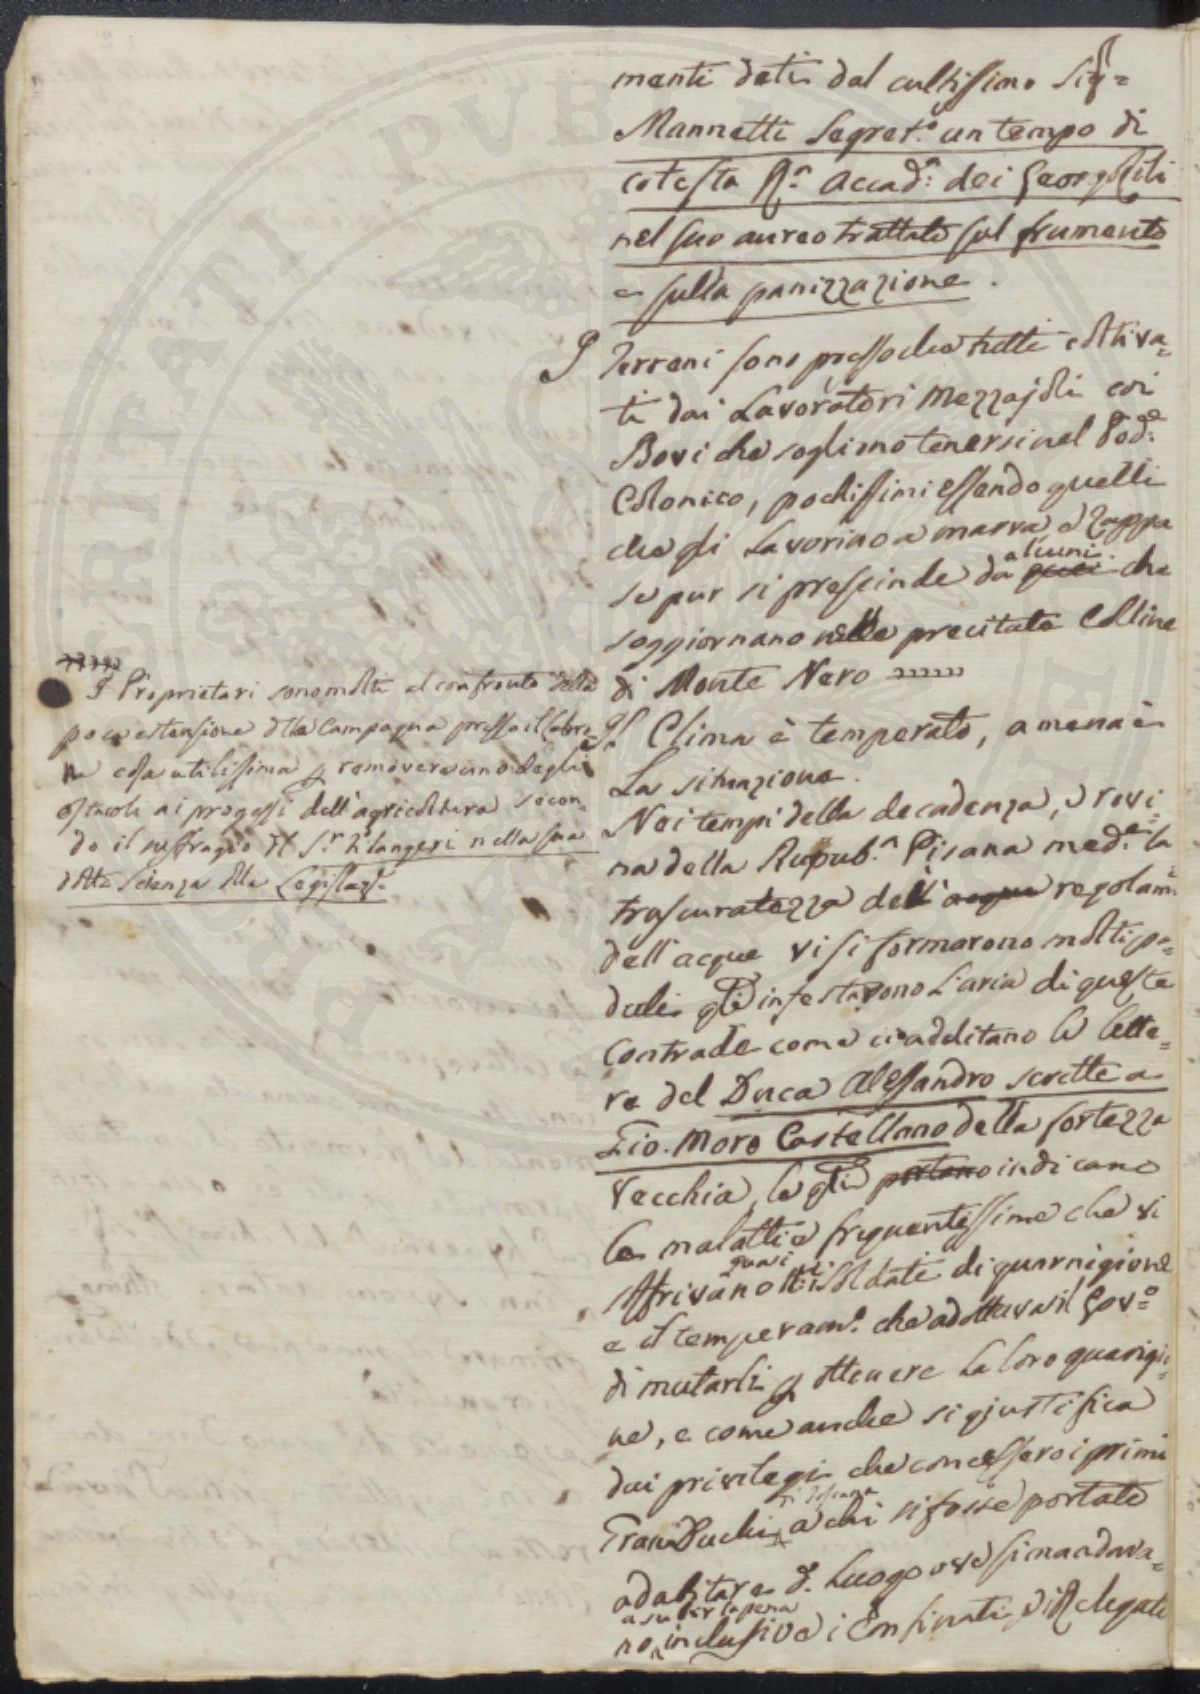 menti dati dal cultissimo Sig.
Mannetti Segret.o un tempo di
cotesta R.a Accad.a dei Georgofili
nel suo aureo trattato sul frumento
e sulla panizzazione.
I Terreni sono pressoche tutti coltiva=
ti dai Lavoratori Mezzajoli coi
Bovi che sogliono tenersi nel Pod.e
Colonico, pochissimi essendo quelli
che gli Lavorino a marra e Zappa
se pur si prescinde da alcuni che
soggiornano nelle precitate Colline
di Monte Nero
Il Clima è temperato, amena è
La situazione.
Nei tempi della decadenza, e rovi=
na della Repub.a Pisana med.e la
trascuratezza dell' acque regolam.
dell'acque vi si formarono molti pa=
duli gli infestavono L'aria di queste
Contrade come ci additano le lette=
re del Duca Alessandro scritte a
Gio. Moro Castellano della fortezza
Vecchia, le gli portano indicano
le malattie frequentissime che vi
soffrivano quasi tti i Soldati di guarnigione
e il temperam.o che adottava il Gov.o
di mutarli p ottenere La loro guarigio=
ne, e come anche si giustifica
dai privilegi che concessero i primi
Gran Duchi di Toscana a chi si fosse portato
ad abitare d. Luogo ove si mandava=
no a subir la pena inclusive i Confinati, e i Relegati
I Proprietari sono molti al confronto della
poca estensione della Campagna presso il Labro=
ne cosa utilissima p removere uno degli
ostacoli ai progessi dell'agricoltura secon=
do il suffragio del S.r Filangeri nella sua
dotta Scienza della Legislaz.e